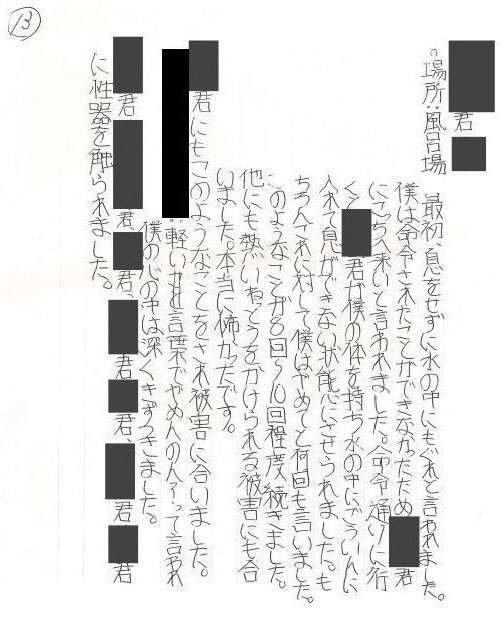 13
君
。場所:風呂場
最初、息をせずに水の中にもぐれと言われました。
僕は命令されたことができなかったため 君
にこっちへ来いと言われました。命令通りに行
くと 君が僕の体を持ち水の中にごういんに
入れて息ができない状態にさせられました。も
ちろんそれに対して僕はやめてと何回も言いました。
このようなことが8回〜10回程度続きました。
他にも熱いお をかけられる被害にも合
いました。本当に怖かったです。
君にもこのようなことをされ被害に合いました。
:軽い 言葉でやめんの人 って言われ
僕の心の中は深くきずつきました。
君 君、 君、 君 君、 君 君
に性器を触られました。